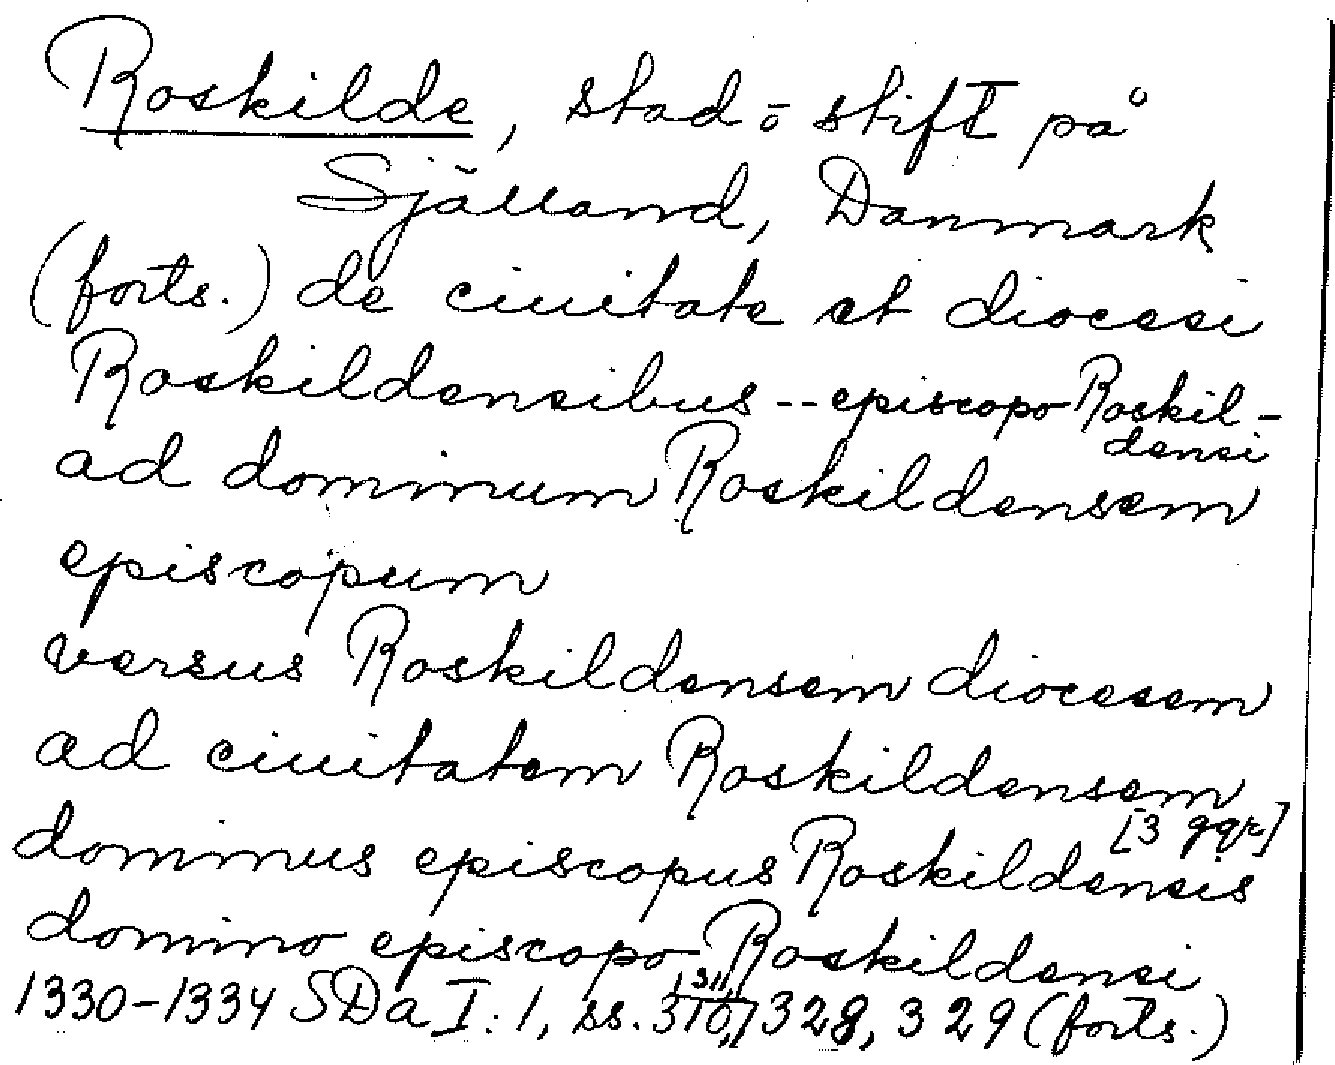 Roskilde, stad o stift på
Själland, Danmark
(forts.) de ciuitate et diocesi
Roskildensibus -- episcopo Roskil-
densi
ad dominum Roskildensem
episcopum
versus Roskildensem diocesem
ad ciuitatem Roskildensem
[3 ggr]
dominus episcopus Roskildensis
domino episcopo Roskildensi
1330-1334 SDa I:1, ss. 310, 311, 328, 329 (forts.)